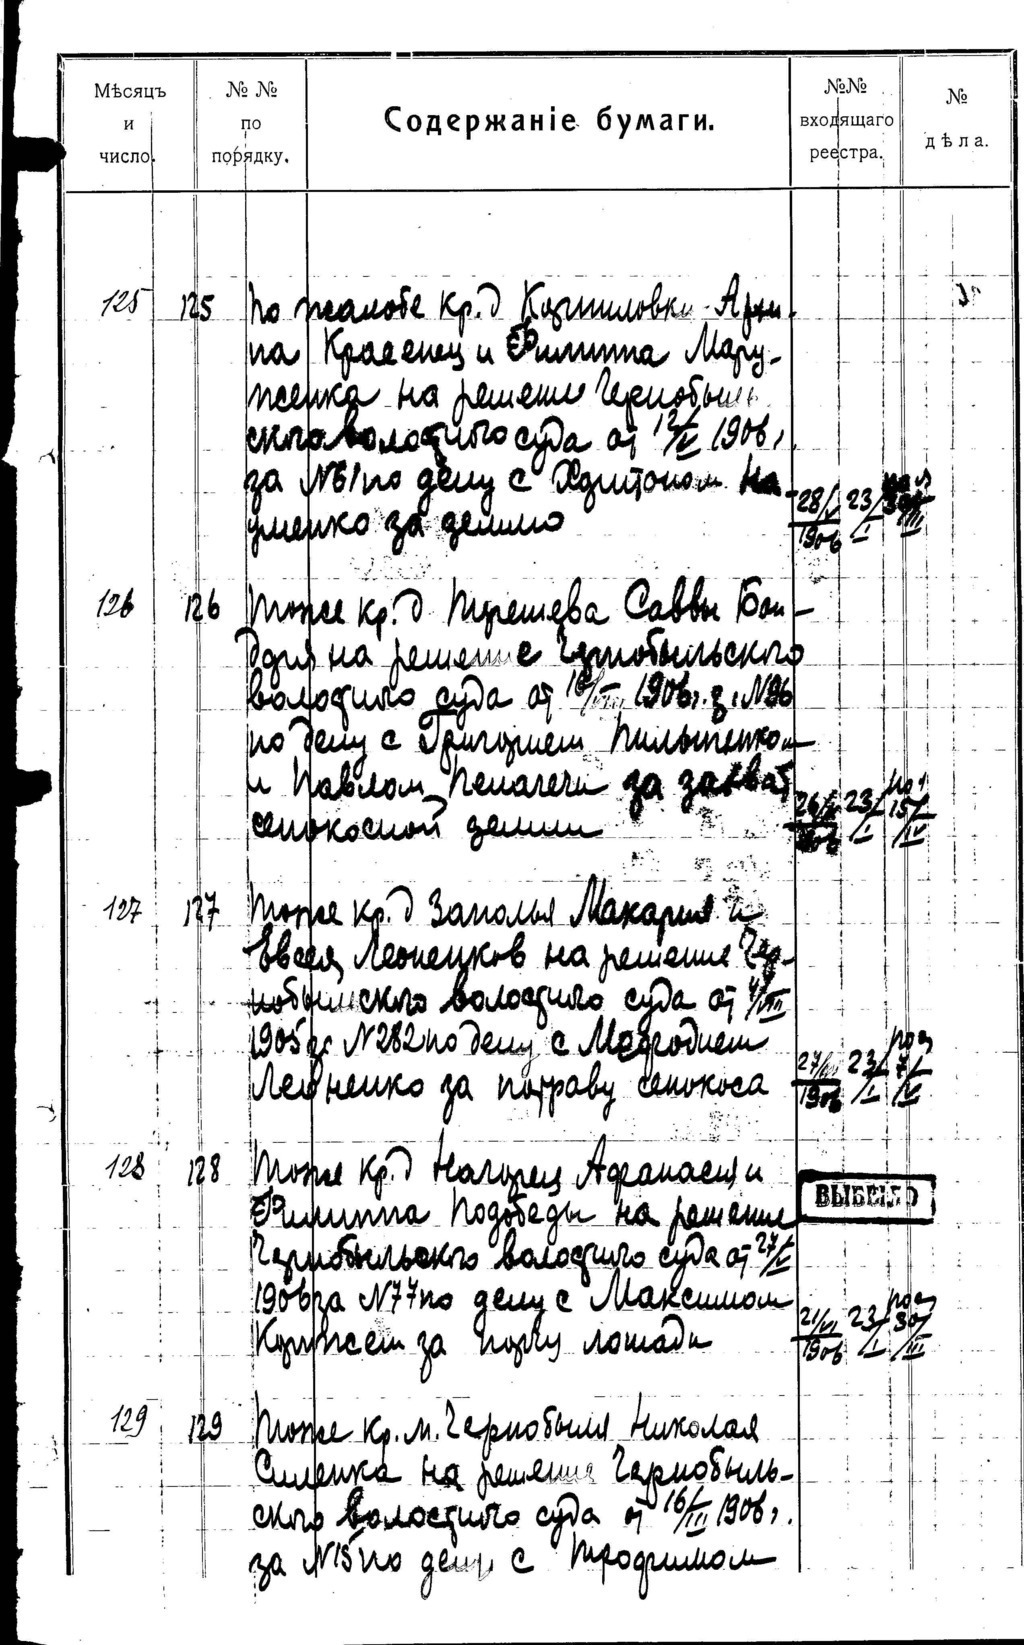 Мѣсяцъ и число.
№ № по порядку.
Содержаніе бумаги.
№№ входящаго реестра.
№ дѣла.
125 125 По жалобе кр. д
на и Филиппа Мару-
женка на решение Чернобыль
ского волостного суда от 12/ 1906 г.
за N61 по делу с Харитоном На-
уменко за землю
28/ 1906 23/I
126 126 Тоже кр. д Саввы Бон-
даря на решение Чернобыльского
волостного суда от 1906 г. з. N96
по делу с Григорием
и Павлом за захват
сенокосной земли
26/ 1906 23/I 15/IV
127 127 Тоже кр. д Заполья Макария и
Евсея Леоненков на решение Чер-
нобыльского волостного суда от
1905 за N282 по делу с Мефодием
Леоненко за потраву сенокоса
27/ 1906 23/I 7/
128 128 Тоже кр. д Нагорец Афанасия и
Филиппа Подобеды на решение
Чернобыльского волостного суда от 27/
1906 за N77 по делу с Максимом
за порчу лошади
ВЫБЫЛО
21/VI 1906 23/I 30/III
129 129 Тоже кр. м. Чернобыля Николая
Силенка на решение Чернобыль-
ского волостного суда от 16/III 1906 г.
за N15 по делу с Трофимом